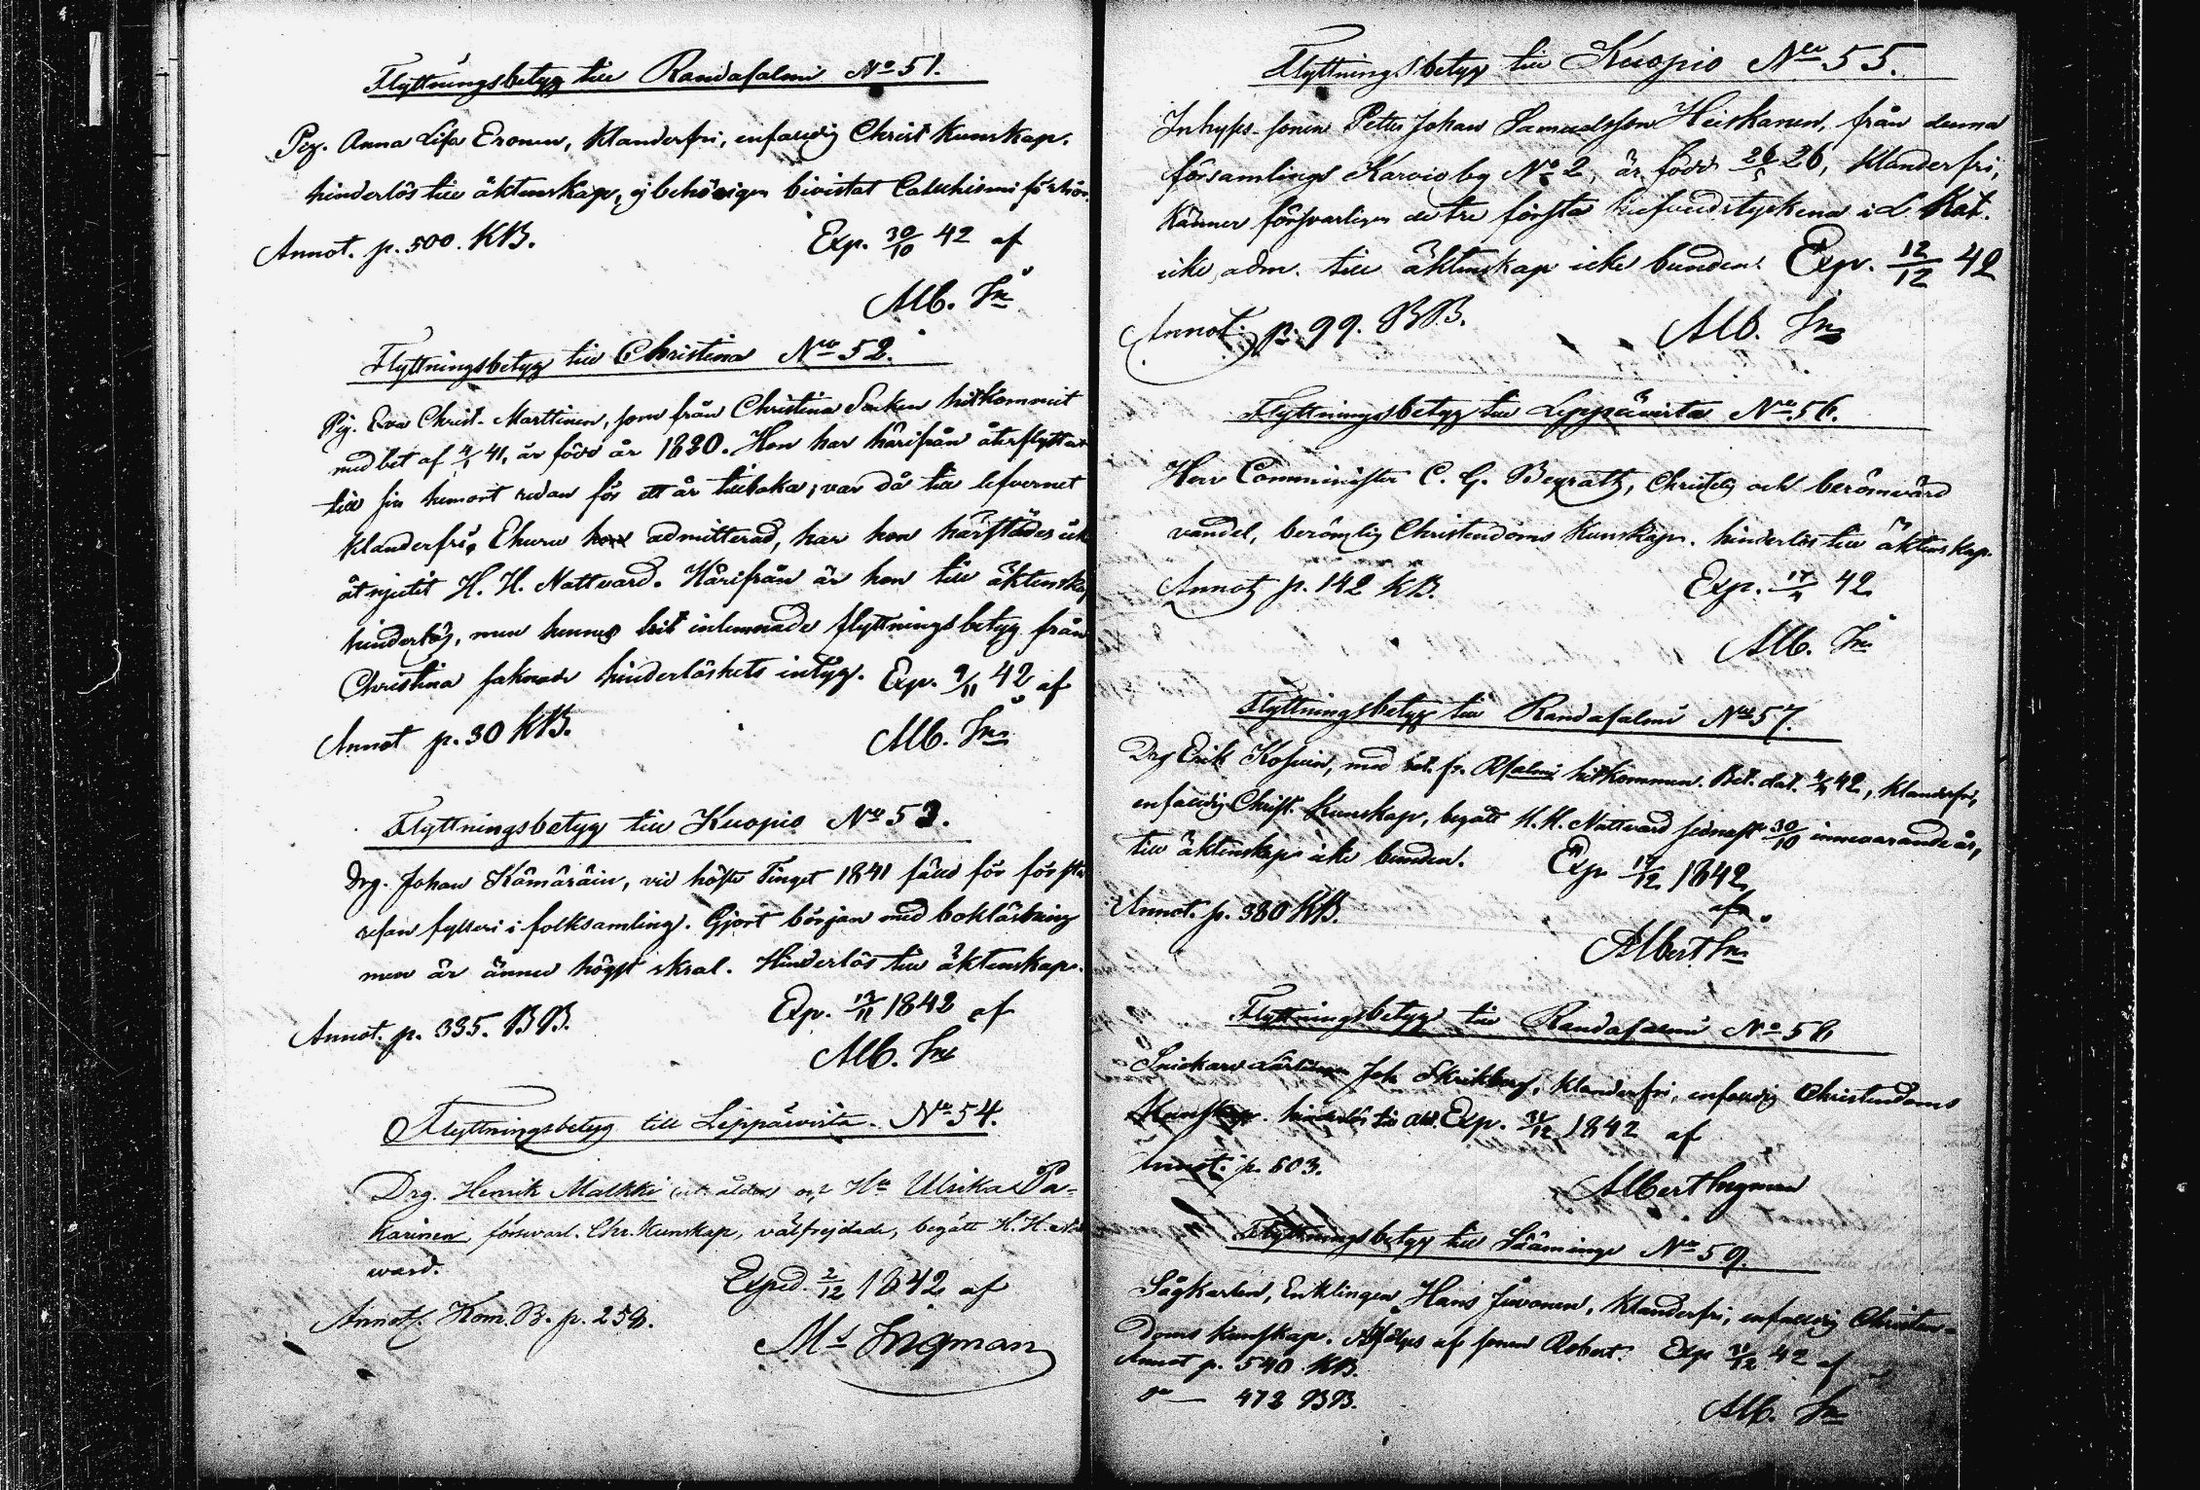 Flyttningsbetyg till Randasalmi No 51.
Pig. Anna Lisa Eronen, klanderfri, enfaldig Christ kunskap.
hinderlös till äktenskap, ej behörigen bivistat Catechismi förhör.
Annot. p. 500. KB. Exp. 30/10 42 af
Alb. In
Flyttningsbetyg till Christina Nro 52.
Pig. Eva Christ. Marttinen, som från Christina Socken hitkommit
med bet af 4/1 41, är född år 1820. Hon har härifrån återflyttat
till sin hemort redan för ett år tillbaka; var då till lefvernet
klanderfri. Ehuru hon admitterad, har hon härstädes icke
åtnjutit H. H. Nattvard. Härifrån är hon till äktenskap
hinderlös, men hennes hit inlemnade flyttningsbetyg från
Christina saknade hinderlöshets intyg. Exp. 9/11 42 af
Annot p. 30 KB. Alb. In
Flyttningsbetyg till Kuopio No 53.
Drg. Johan Kämäräin, vid höste Tinget 1841 fälld för första
resan fylleri i folksamling. Gjort början med bokläsning
men är ännu högst skral. Hinderlös till äktenskap.
Annot. p. 335. BB. Exp. 13/11 1842 af
Alb. In
Flyttningsbetyg till Leppävirta. No 54.
Drg. Henrik Malkki och Hu Ulrika Pa-
karinen, försvarl. Chr. kunskap, välfrejdade, begått H. H.
ward.
Exped. 2/12 1842 af
Annot. Kom. B. p. 259.
Ms Ingman
Flyttningsbetyg till Kuopio Nro 55.
Inhyses-sonen Petter Johan Samuelsson Heiskanen, från denna
församlings Karvio by No 2, är född 26/5 26, klanderfri,
känner försvarligen de tre första hufvudstyckena i L. Kat.
icke adm. till äktenskap icke bunden. Exp. 12/12 42
Annot. p. 99. BB. Alb. In
Flyttningsbetyg till Leppävirta Nro 56.
Herr Comminister C. G. Begräth, Christlig och berömvärd
vandel, berömlig Christendoms kunskap. hinderlös till äktenskap.
Annot p. 142 KB. Exp. 42
Alb. In
Flyttningsbetyg till Randasalmi No 57.
Drg Erik Kosuin, med bet. fr. Rsalmi hitkommen. Bet. dat. 42, klanderfri,
enfaldig Christ. kunskap, begått H. H. Nattvard sednast 30/10 innevarande år,
till äktenskap icke bunden. Exp 17/12 1842
Annot. p. 380 KB. af
Albert In
Flyttningsbetyg till Randasalmi No 58
Snickare Joh Skrikberg, klanderfri, enfaldig Christendoms
kunskap. hinderlös till äkt. Exp. 31/12 1842 af
Annot. p. 603.
Albert Ingman
Flyttningsbetyg till Sääminge No 59.
Sågkarlen, Enklingen Hans Juvonen, klanderfri, enfaldig Christen-
doms kunskap. Åtföljes af sonen Robert. Exp 31/12 42 af
Annot p. 540 KB.
do — 472 BB.
Alb. In